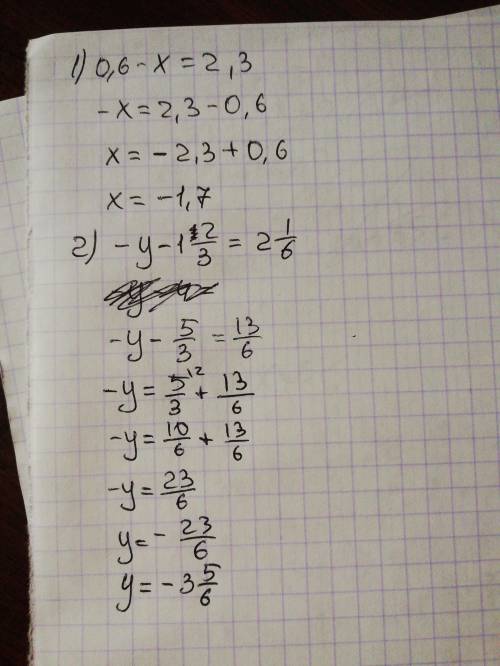 1) 0,6 - x = 2,3
-x = 2,3 - 0,6
x = -2,3 + 0,6
x = -1,7
2) -y - 1 2/3 = 2 1/6
-y - 5/3 = 13/6
-y = 5/3 ¹² + 13/6
-y = 10/6 + 13/6
-y = 23/6
y = - 23/6
y = -3 5/6